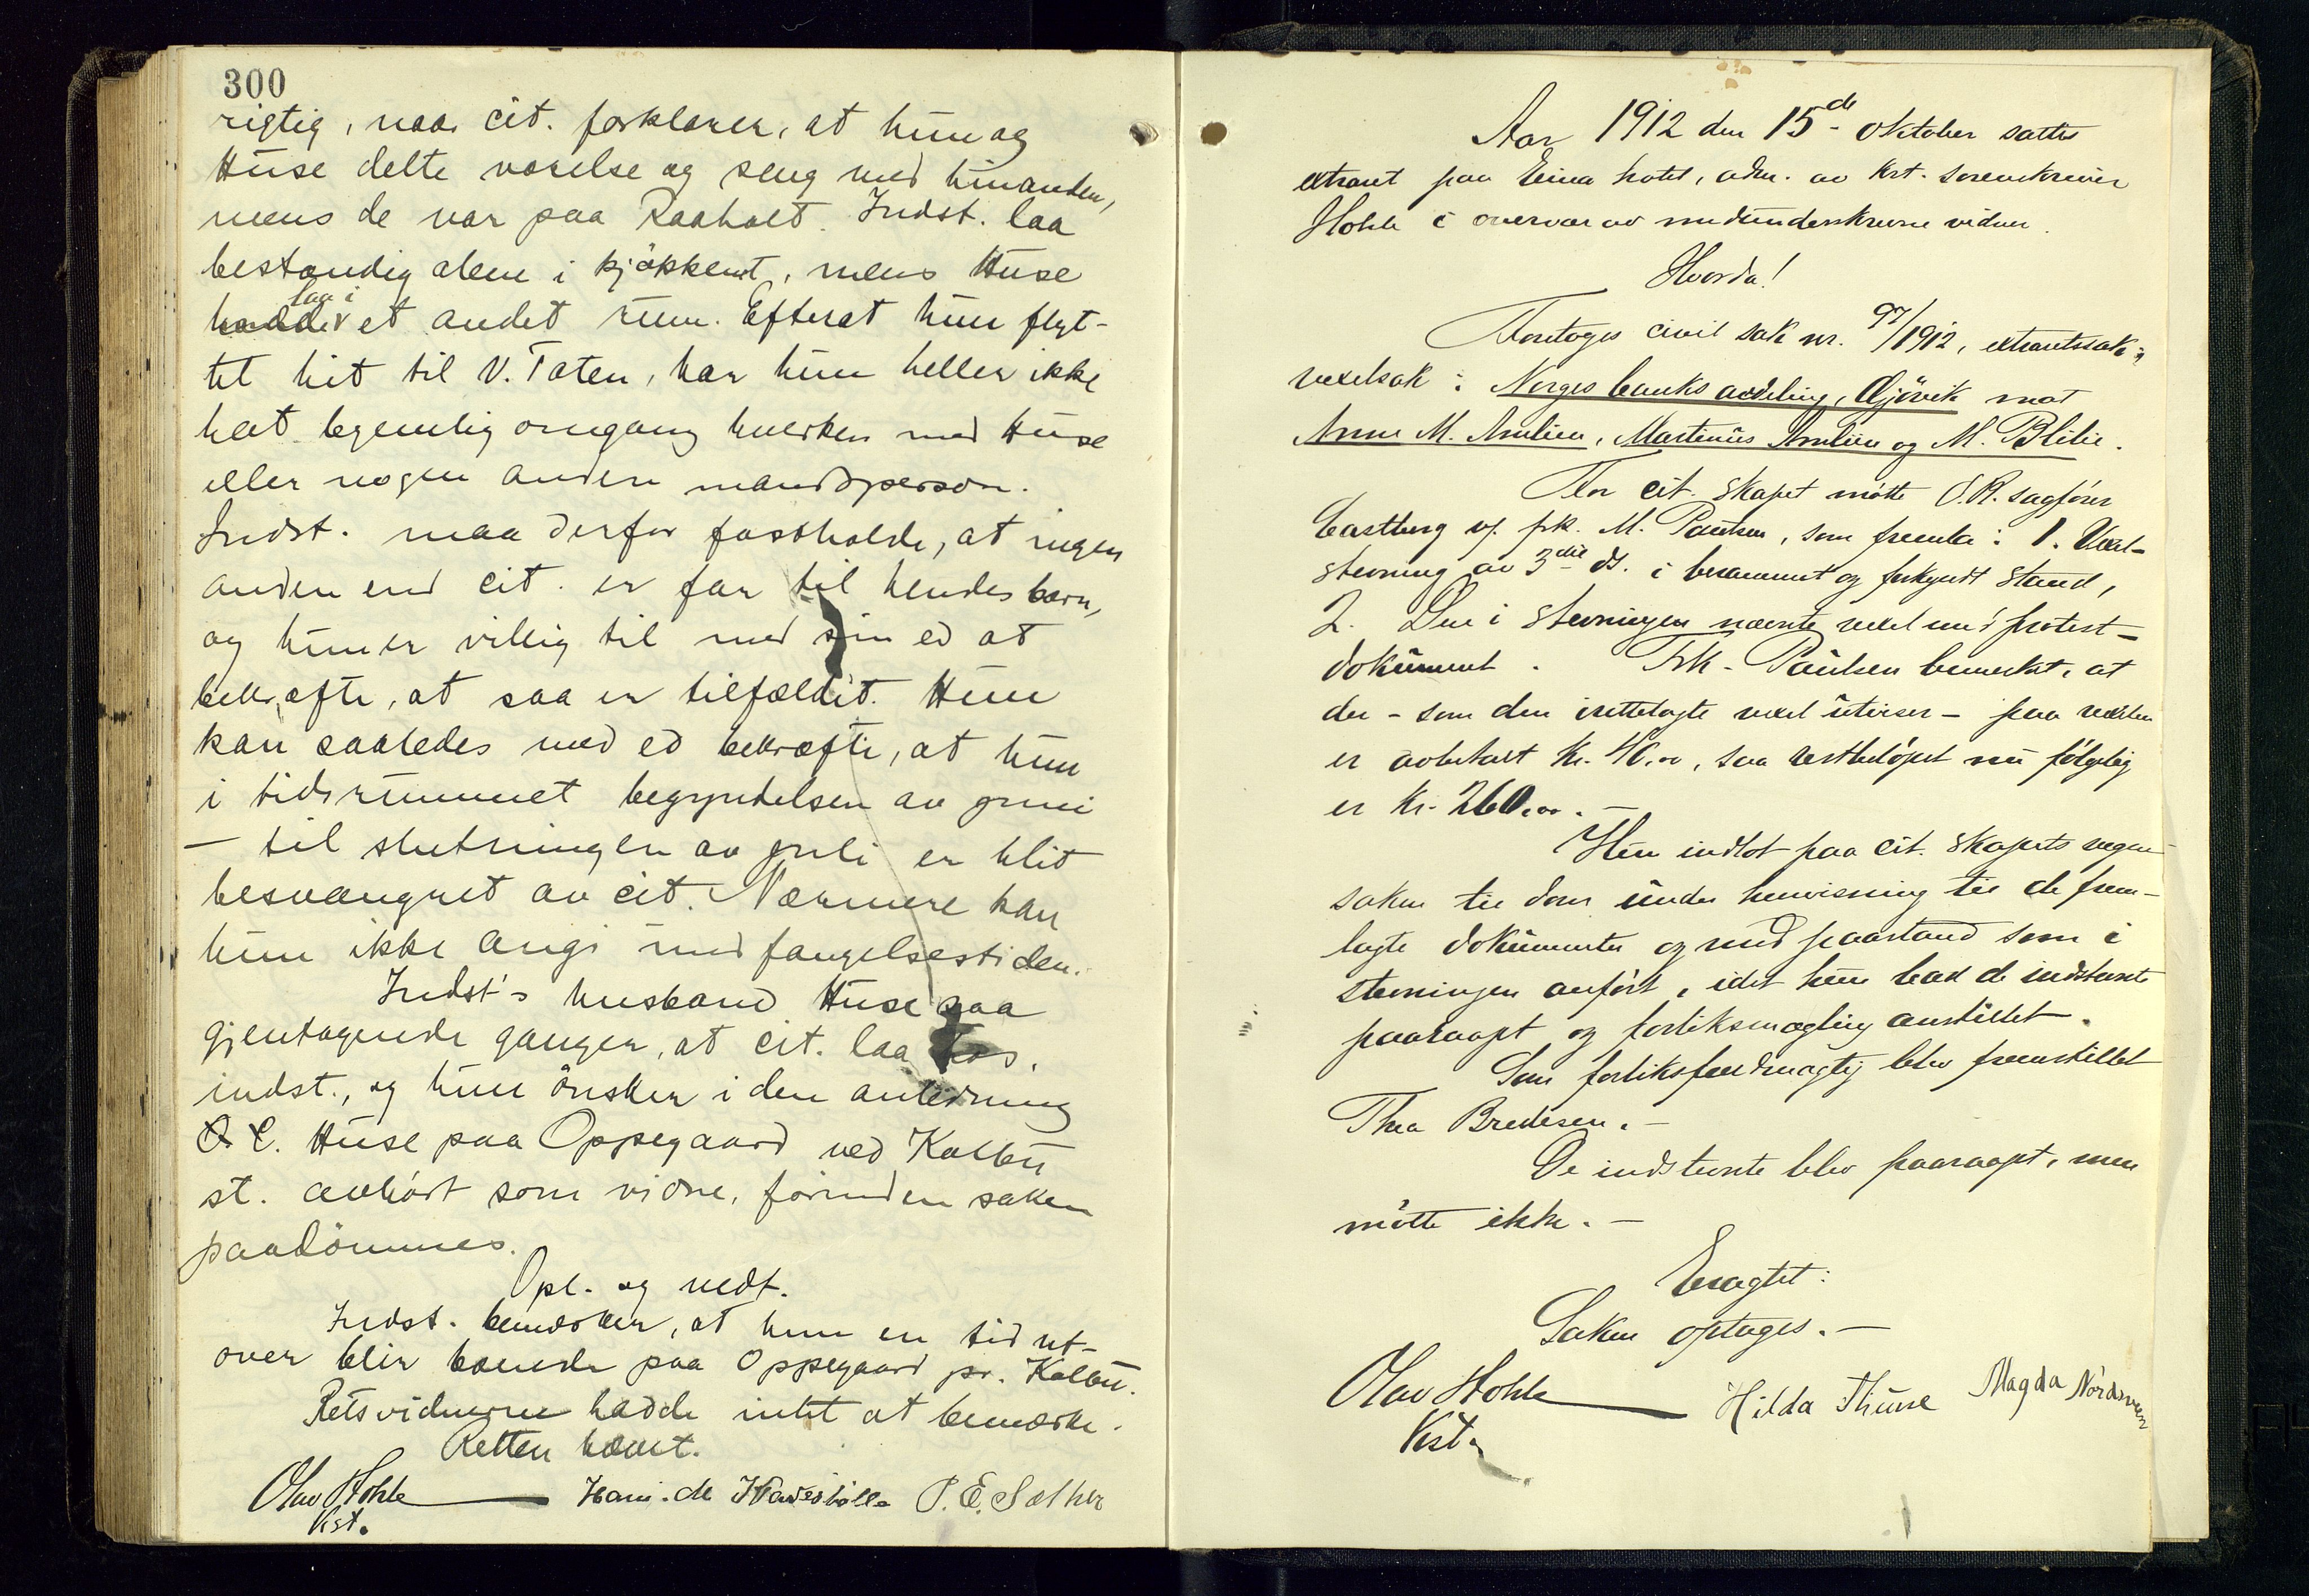 300
rigtig, naar cit. forklarer, at hun og
Huse delte værelse og seng med hinanden,
mens de var paa Raaholt. Indst. laa
bestandig alene i kjøkkenet, mens Huse
laa i
hadde et andet rum. Efterat hun flyt-
tet hit til V. Toten, har hun heller ikke
hat legemlig omgang hverken med Huse
eller nogen anden mandsperson.
Indst. maa derfor fastholde, at ingen
anden end cit. er far til hendes barn,
og hun er villig til med sin ed at
bekræfte, at saa er tilfældet. Hun
kan saaledes med ed bekræfte, at hun
i tidsrummet begyndelsen av juni
– til slutningen av juli er blit
besvangret av cit. Nærmere kan
hun ikke angi undfangelsestiden.
Indst's husbond Huse saa
gjentagende ganger, at cit. laa hos
indst., og hun ønsker i den anledning
O. C. Huse paa Oppegaard ved Kolbu
st. avhørt som vidne, forinden saken
paadømmes.
Opl. og vedt.
Indst. bemærker, at hun en tid ut-
over blir boende paa Oppegaard pr. Kolbu.
Retsvidnerne hadde intet at bemerke.
Retten hævet.
Olav Hohle P. E. Sæther
Kst.
Aar 1912 den 15de oktober sattes
extraret paa Eina hotel, adm. av kst. sorenskriver
Hohle i overvær av medunderskrevne vidner.
Hvorda!
Foretoges civil sak nr. 97/1912, extraretssak,
vexelsak: Norges banks avdeling, Gjøvik mot
Anne M. Amlien, Martinius Amlien og M. Blilie.
For cit. skapet møtte O.R. sagfører
Castberg v/ frk. M. Paulsen, som fremla: 1. Vexel-
stevning av 3die ds. i berammet og forkyndt stand,
2. Den i stevningen nævnte vexel med protest-
dokument. Frk. Paulsen bemerket, at
der – som den irettelagte vexel utviser – paa vexelen
er avbetalt kr. 40.00, saa restbeløpet nu følgelig
er kr. 260.00. –
Hun indlot paa cit. skapets vegne
saken til dom under henvisning til de frem-
lagte dokumenter og med paastand som i
stevningen anført, idet hun bad de indstevnte
paaraapt og forliksmægling anstillet.
Som forliksfuldmægtig blev fremstillet
Thea Bredesen. –
De indstevnte blev paaraapt, men
møtte ikke. –
Eragtet:
Saken optages. –
Olav Hohle Hilda Thune Magda
Kst.